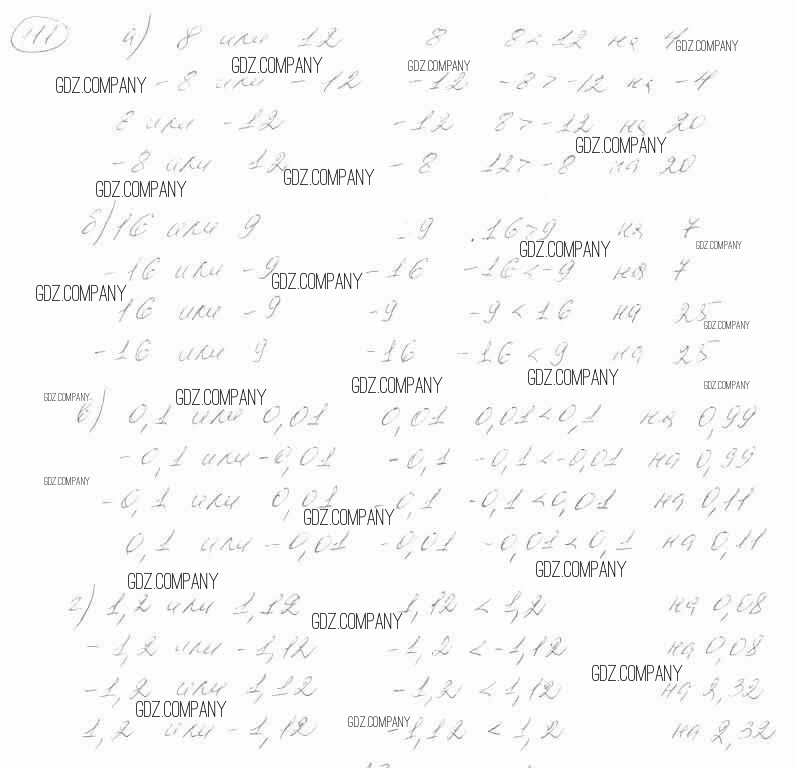 111 а) 8 или 12 8 8 < 12 на 4 GDZ.COMPANY
GDZ.COMPANY GDZ.COMPANY
GDZ.COMPANY -8 или -12 -12 -8 > -12 на -4
8 или -12 -12 8 > -12 на 20
GDZ.COMPANY
-8 или 12 GDZ.COMPANY -8 12 > -8 на 20
GDZ.COMPANY
б) 16 или 9 9 16 > 9 на 7
GDZ.COMPANY GDZ.COMPANY
-16 или -9 GDZ.COMPANY -16 -16 < -9 на 7
GDZ.COMPANY
16 или -9 -9 -9 < 16 на 25
GDZ.COMPANY
-16 или 9 -16 -16 < 9 на 25
GDZ.COMPANY GDZ.COMPANY GDZ.COMPANY
GDZ.COMPANY GDZ.COMPANY
в) 0,1 или 0,01 0,01 0,01 < 0,1 на 0,99
-0,1 или -0,01 -0,1 -0,1 < -0,01 на 0,99
GDZ.COMPANY
-0,1 или 0,01 -0,1 -0,1 < 0,01 на 0,11
GDZ.COMPANY
0,1 или -0,01 -0,01 -0,01 < 0,1 на 0,11
GDZ.COMPANY GDZ.COMPANY
г) 1,2 или 1,12 1,12 < 1,2 на 0,08
GDZ.COMPANY
-1,2 или -1,12 -1,2 < -1,12 на 0,08
GDZ.COMPANY
-1,2 или 1,12 -1,2 < 1,12 на 2,32
GDZ.COMPANY
1,2 или -1,12 GDZ.COMPANY -1,12 < 1,2 на 2,32